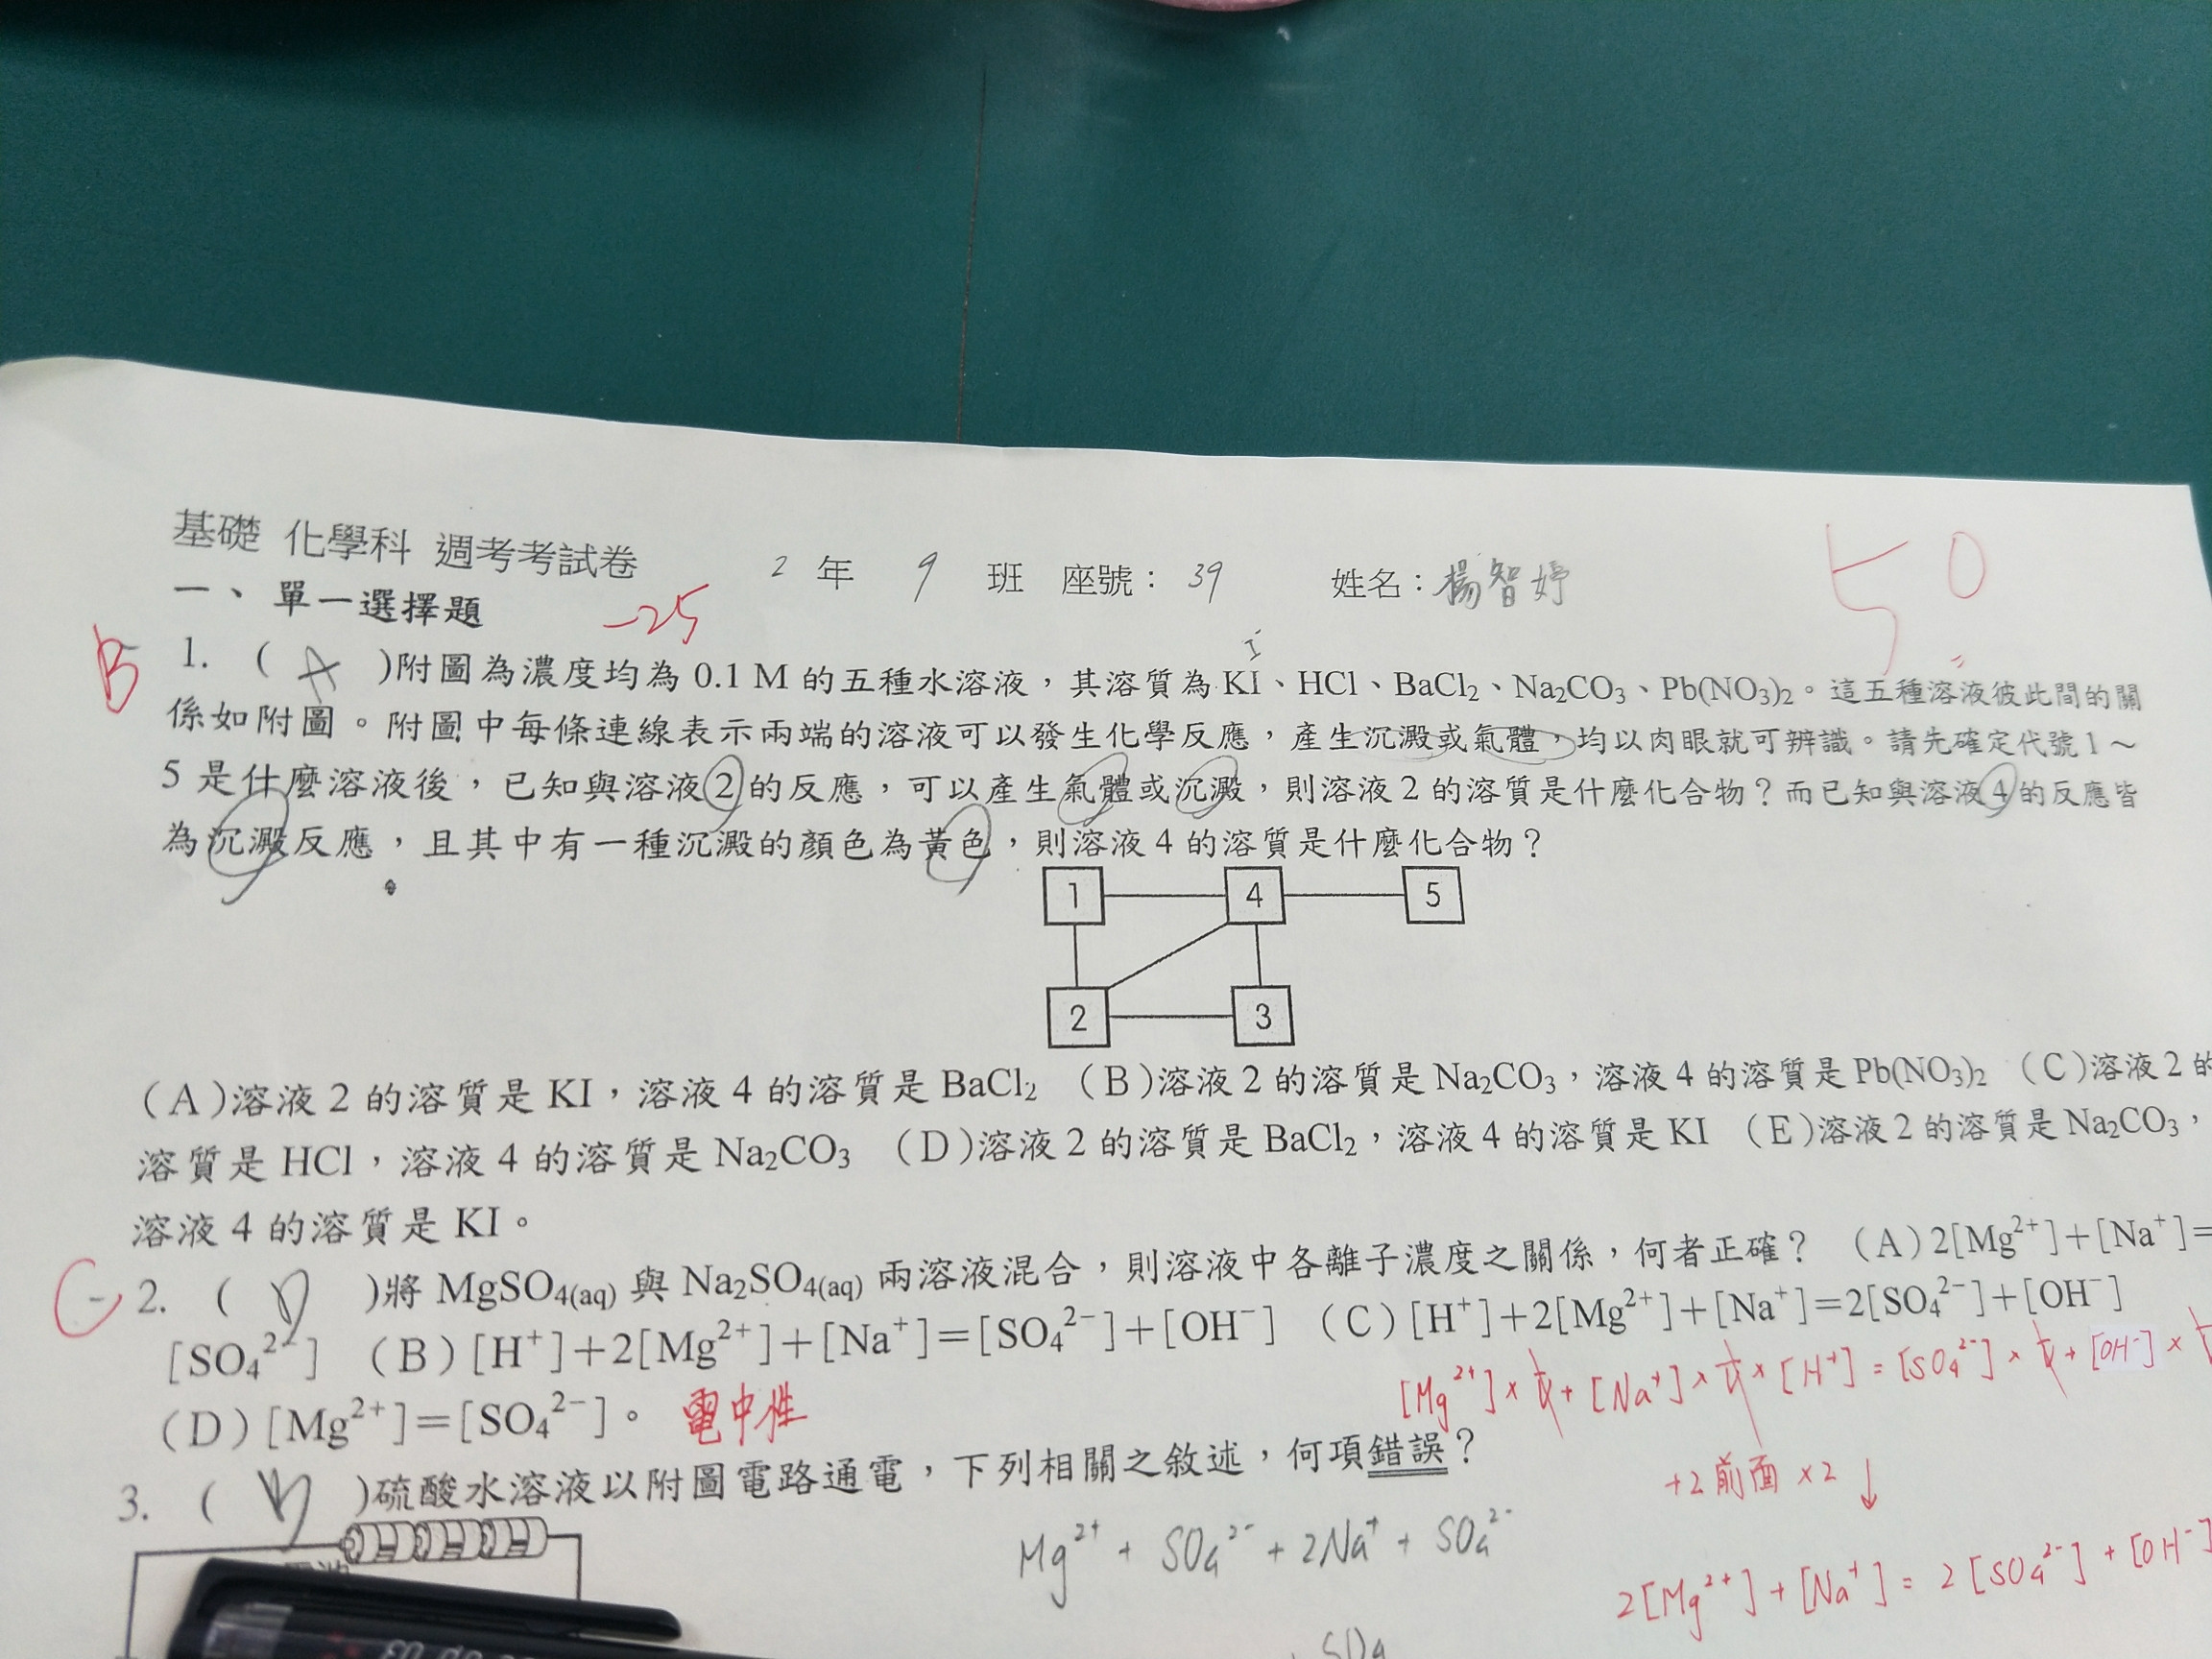 基礎 化學科 週考考試卷 2 年 9 班 座號：39 姓名：楊智妤
50
一、單一選擇題 -25
I⁻
B 1. ( A )附圖為濃度均為 0.1 M 的五種水溶液，其溶質為 KI、HCl、BaCl₂、Na₂CO₃、Pb(NO₃)₂。這五種溶液彼此間的關
係如附圖。附圖中每條連線表示兩端的溶液可以發生化學反應，產生沉澱或氣體，均以肉眼就可辨識。請先確定代號 1～
5 是什麼溶液後，已知與溶液 2 的反應，可以產生氣體或沉澱，則溶液 2 的溶質是什麼化合物？而已知與溶液 4 的反應皆
為沉澱反應，且其中有一種沉澱的顏色為黃色，則溶液 4 的溶質是什麼化合物？
1 4 5
2 3
(A)溶液 2 的溶質是 KI，溶液 4 的溶質是 BaCl₂ (B)溶液 2 的溶質是 Na₂CO₃，溶液 4 的溶質是 Pb(NO₃)₂ (C)溶液 2 的
溶質是 HCl，溶液 4 的溶質是 Na₂CO₃ (D)溶液 2 的溶質是 BaCl₂，溶液 4 的溶質是 KI (E)溶液 2 的溶質是 Na₂CO₃，
溶液 4 的溶質是 KI。
C 2. ( D )將 MgSO₄(aq) 與 Na₂SO₄(aq) 兩溶液混合，則溶液中各離子濃度之關係，何者正確？ (A) 2[Mg²⁺]+[Na⁺]=
[SO₄²⁻] (B) [H⁺]+2[Mg²⁺]+[Na⁺]=[SO₄²⁻]+[OH⁻] (C) [H⁺]+2[Mg²⁺]+[Na⁺]=2[SO₄²⁻]+[OH⁻]
(D) [Mg²⁺]=[SO₄²⁻]。 電中性
[Mg²⁺]× + [Na⁺]× × [H⁺] = [SO₄²⁻]× + [OH⁻]×
+2 前面 ×2 ↓
3. ( )硫酸水溶液以附圖電路通電，下列相關之敘述，何項錯誤？
Mg²⁺ + SO₄²⁻ + 2Na⁺ + SO₄²⁻
2[Mg²⁺]+[Na⁺] = 2[SO₄²⁻]+[OH⁻]